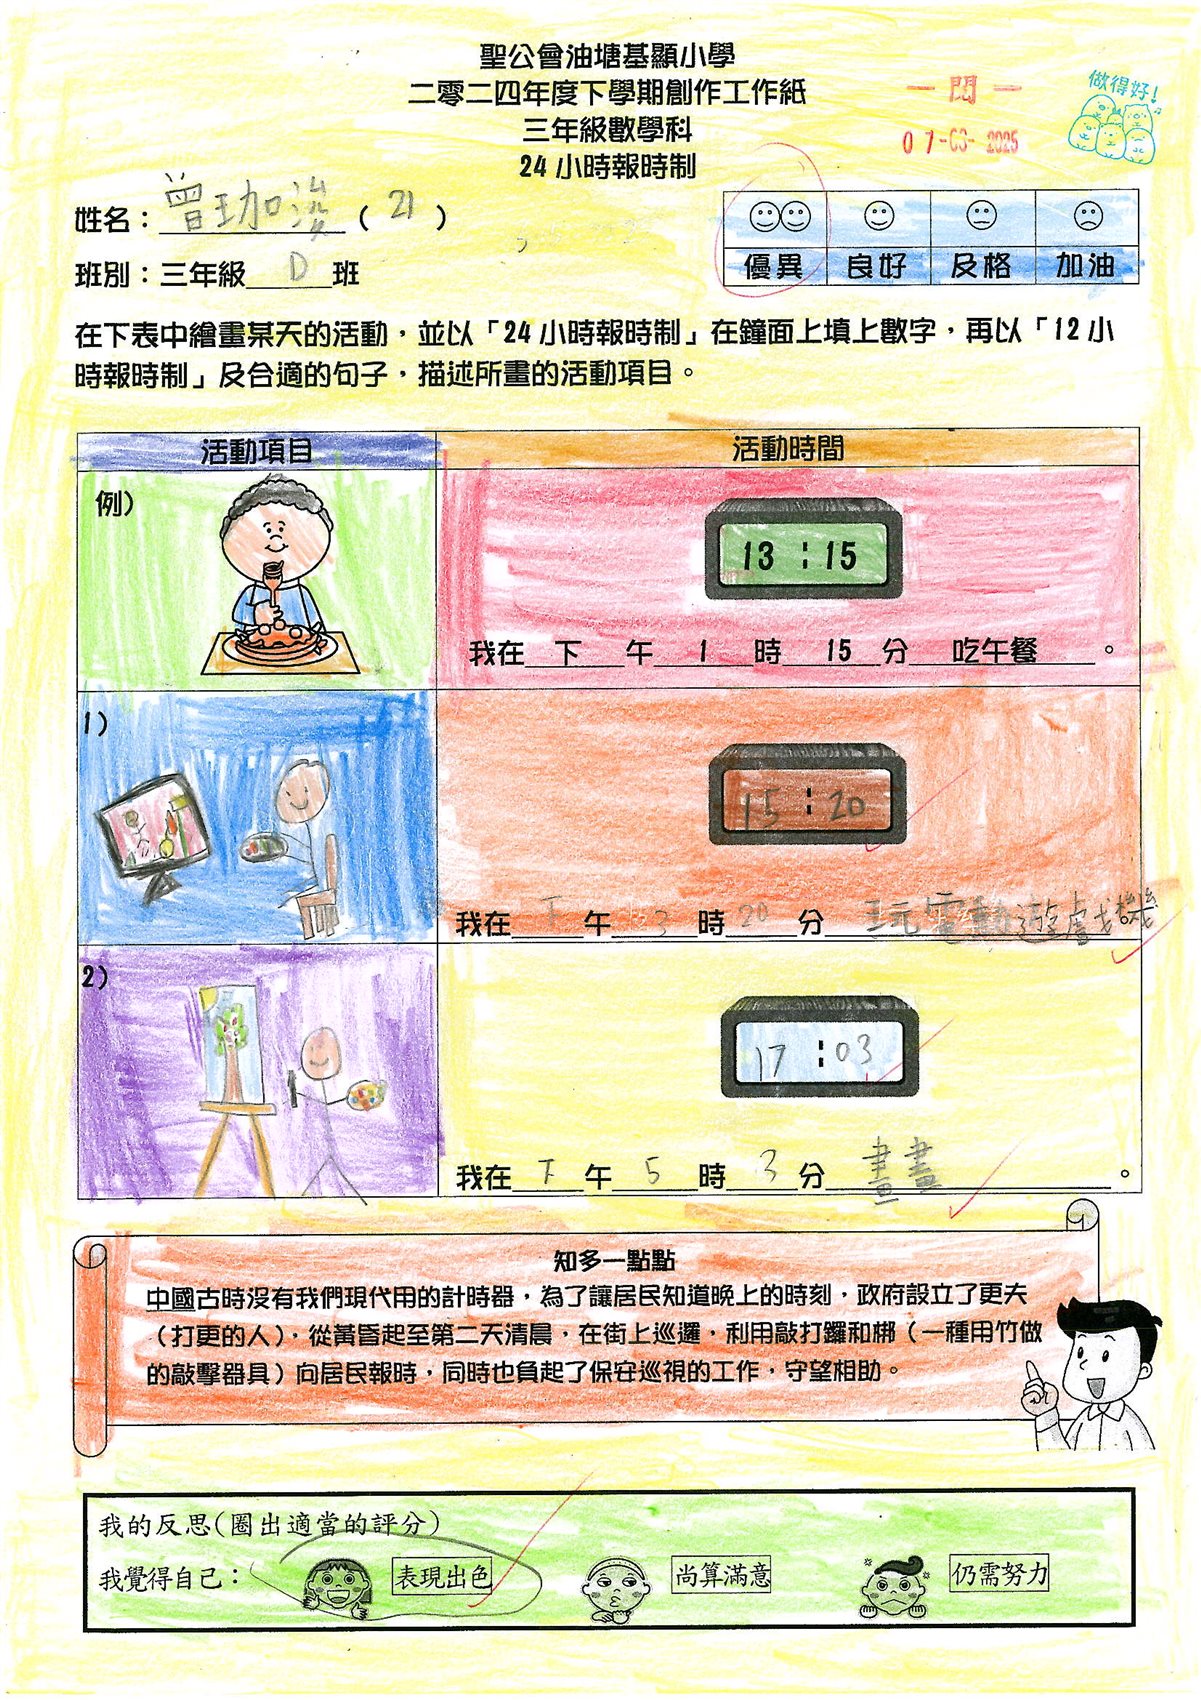 聖公會油塘基顯小學
二零二四年度下學期創作工作紙
三年級數學科
24 小時報時制
一 閱 一
07-03-2025
做得好!
姓名：曾珈浚（ 21 ）
班別：三年級 D 班
優異 良好 及格 加油
在下表中繪畫某天的活動，並以「24 小時報時制」在鐘面上填上數字，再以「12 小
時報時制」及合適的句子，描述所畫的活動項目。
活動項目 活動時間
例）
13 : 15
我在 下 午 1 時 15 分 吃午餐 。
1）
15 : 20
我在 下 午 3 時 20 分 玩電動遊戲機
2）
17 : 03
我在 下 午 5 時 3 分 畫畫 。
知多一點點
中國古時沒有我們現代用的計時器，為了讓居民知道晚上的時刻，政府設立了更夫
（打更的人），從黃昏起至第二天清晨，在街上巡邏，利用敲打鑼和梆（一種用竹做
的敲擊器具）向居民報時，同時也負起了保安巡視的工作，守望相助。
我的反思（圈出適當的評分）
我覺得自己： 表現出色 尚算滿意 仍需努力